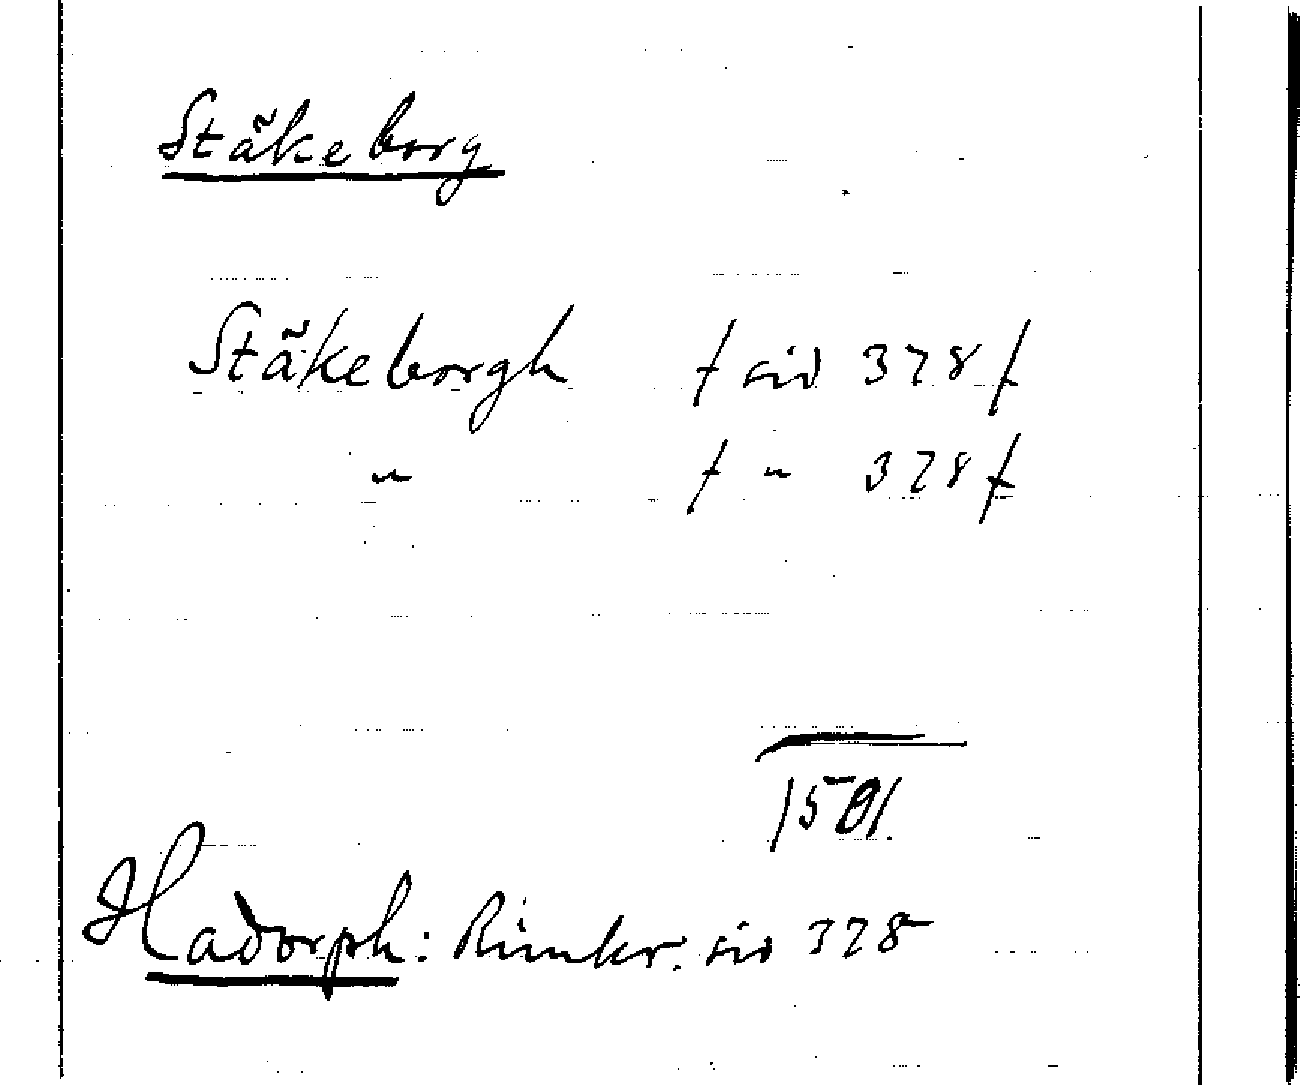 Stäkeborg
Stäkeborgh / sid 378 /
" / " 378 /
1501.
Hadorph: Rimkr. sid 378